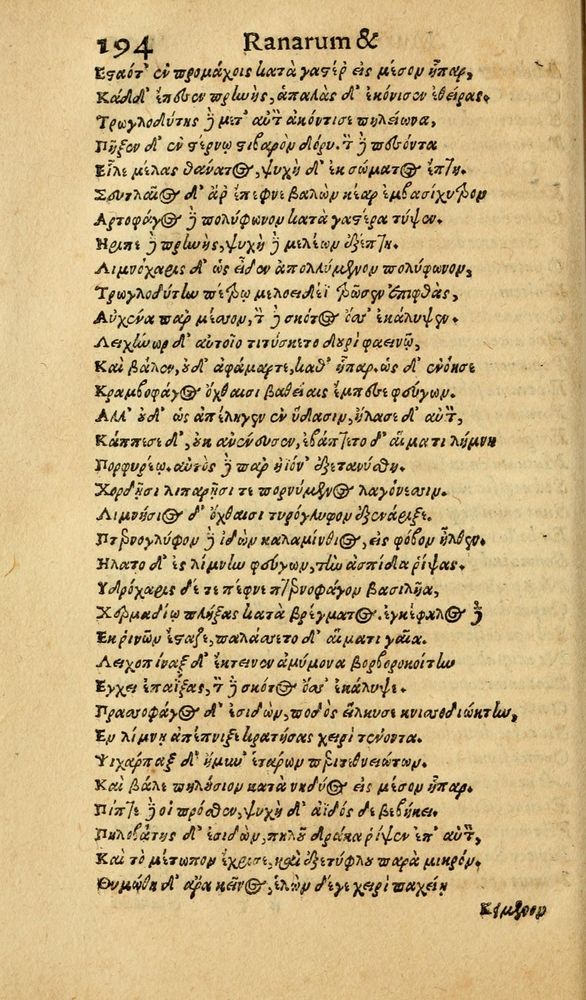 194 Ranarum &
Εσαότ' ἐν προμάχοις κατὰ γαστέρ εἰς μέσον ἧπαρ,
Κάδδ' ἔπεσεν πρωνὴς, ἁπαλὰς δ' ἐκόνισεν ἐθείρας.
Τρωγλοδύτης ἢ μετ' αὐτὸν ἀκόντισε πηλείωνα,
Πῆξεν δ' ἐν στέρνῳ στιβαρὸν δόρυ. τὸν δὲ πεσόντα
Εἷλε μέλας θάνατος, ψυχὴ δ' ἐκ σώματος ἔπτη.
Σευτλαῖος δ' ἄρ ἔπεφνε βαλὼν κέαρ ἐμβασίχυτρον
Αρτοφάγος δὲ πολύφωνον κατὰ γαστέρα τύψεν.
Ηριπε δὲ πρωνὴς, ψυχὴ δὲ μελέων ἐξέπτη.
Λιμνόχαρις δ' ὡς εἶδεν ἀπολλύμενον πολύφωνον,
Τρωγλοδύτην πέτρῳ μυλοειδέϊ τρῶσεν ἐπιφθὰς,
Αὐχένα παρ μέσσον, τὸν δὲ σκότος ὄσσε ἐκάλυψεν.
Λειχήνωρ δ' αὐτοῖο τιτύσκετο δουρὶ φαεινῷ,
Καὶ βάλεν, οὐδ' ἀφάμαρτε, καθ' ἧπαρ. ὡς δ' ἐνόησε
Κραμβοφάγος ὄχθαισι βαθείαις ἔμπεσε φεύγων.
Αλλ' οὐδ' ὡς ἀπέληγεν ἐν ὕδασιν, ἤλασε δ' αὐτὸν,
Κάππεσε δ', οὐκ ἀνένευσεν, ἐβάπτετο δ' αἵματι λήμνη
Πορφυρέῳ. αὐτὸς δὲ παρ ἠϊόν' ἐξετανύσθη.
Χορδῇσι λιπαρῇσί τε πορνύμενος λαγόνεσσιν.
Λιμνήσιος δ' ὄχθαισι τυρόγλυφον ἐξενάριξε.
Πτερνογλύφον δὲ ἰδὼν καλαμίνθιος, εἰς φόβον ἦλθεν.
Ηλατο δ' ἐς λίμνην φεύγων, τὴν ἀσπίδα ῥίψας.
Υδρόχαρις δέ τ' ἔπεφνε πτερνοφάγον βασιλῆα,
Χερμαδίῳ πλήξας κατὰ βρέγματος. ἐγκέφαλος δὲ
Εκ ῥινῶν ἔσταζε, παλάσσετο δ' αἵματι γαῖα.
Λειχοπίναξ δ' ἔκτεινεν ἀμύμονα βορβοροκοίτην
Εγχει ἐπαΐξας, τὸν δὲ σκότος ὄσσ' ἐκάλυψε.
Πρασσοφάγος δ' ἐσιδὼν, ποδὸς εἵλκυσε κνισσοδιώκτην,
Εν λίμνῃ ἀπέπνιξε κρατήσας χειρὶ τένοντα.
Ψιχάρπαξ δ' ἤμυν' ἑτάρων περιτεθνειώτων.
Καὶ βάλε πηλήσιον κατὰ νηδύος εἰς μέσον ἧπαρ.
Πίπτε δὲ οἱ πρόσθεν, ψυχὴ δ' ἀϊδόσδε βεβήκει.
Πηλοβάτης δ' ἐσιδὼν, πηλοῦ δράκα ῥίψεν ἐπ' αὐτὸν,
Καὶ τὸ μέτωπον ἔχρισε, καὶ ἐξετύφλου παρὰ μικρόν.
Θυμώθη δ' ἄρα κεῖνος, ἑλὼν δέ γε χειρὶ παχείῃ
Κείμενον